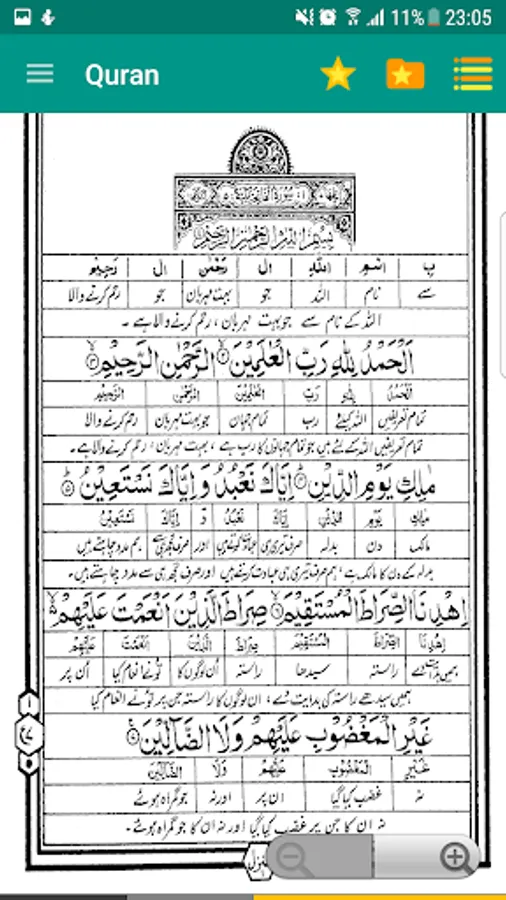 11% 23:05
Quran
بِسْمِ اللّٰهِ الرَّحْمٰنِ الرَّحِيْمِ
بِ اِسْمِ اللّٰهِ ال رَحْمٰن ال رَحِيْمِ
سے نام اللہ جو بہت مہربان جو رحم کرنے والا
اللہ کے نام سے جو بہت مہربان ، رحم کرنے والا ہے ۔
اَلْحَمْدُ لِلّٰهِ رَبِّ الْعٰلَمِيْنَ ۱ الرَّحْمٰنِ الرَّحِيْمِ ۲
اَلْحَمْدُ لِلّٰهِ رَبِّ الْعٰلَمِيْنَ الرَّحْمٰنِ الرَّحِيْمِ
تمام تعریفیں اللہ کیلئے رب تمام جہان جو بہت مہربان رحم کرنے والا
تمام تعریفیں اللہ کے لئے ہیں جو تمام جہانوں کا رب ہے ، بہت مہربان ، رحم کرنے والا ہے ۔
مٰلِكِ يَوْمِ الدِّيْنِ اِيَّاكَ نَعْبُدُ وَ اِيَّاكَ نَسْتَعِيْنُ
مٰلِكِ يَوْمِ الدِّيْنِ اِيَّاكَ نَعْبُدُ وَ اِيَّاكَ نَسْتَعِيْنُ
مالک دن بدلہ صرف تیری ہی عبادت کرتے ہیں اور صرف تجھ ہی سے ہم مدد چاہتے ہیں
بدلہ کے دن کا مالک ہے ، ہم صرف تیری ہی عبادت کرتے ہیں اور صرف تجھ ہی سے مدد چاہتے ہیں ۔
اِهْدِنَا الصِّرَاطَ الْمُسْتَقِيْمَ صِرَاطَ الَّذِيْنَ اَنْعَمْتَ عَلَيْهِمْ
اِهْدِنَا الصِّرَاطَ الْمُسْتَقِيْمَ صِرَاطَ الَّذِيْنَ اَنْعَمْتَ عَلَيْهِمْ
ہمیں ہدایت دے راستہ سیدھا راستہ اُن لوگوں کا تونے انعام کیا اُن پر
ہمیں سیدھے راستہ کی ہدایت دے ، ان لوگوں کا راستہ جن پر تونے انعام کیا
غَيْرِ الْمَغْضُوْبِ عَلَيْهِمْ وَلَا الضَّآلِّيْنَ
غَيْرِ الْمَغْضُوْبِ عَلَيْهِمْ وَلَا الضَّآلِّيْنَ
نہ غضب کیا گیا ان پر اور نہ جو گمراہ ہوئے
نہ ان کا جن پر غضب کیا گیا اور نہ ان کا جو گمراہ ہوئے ۔
منزل